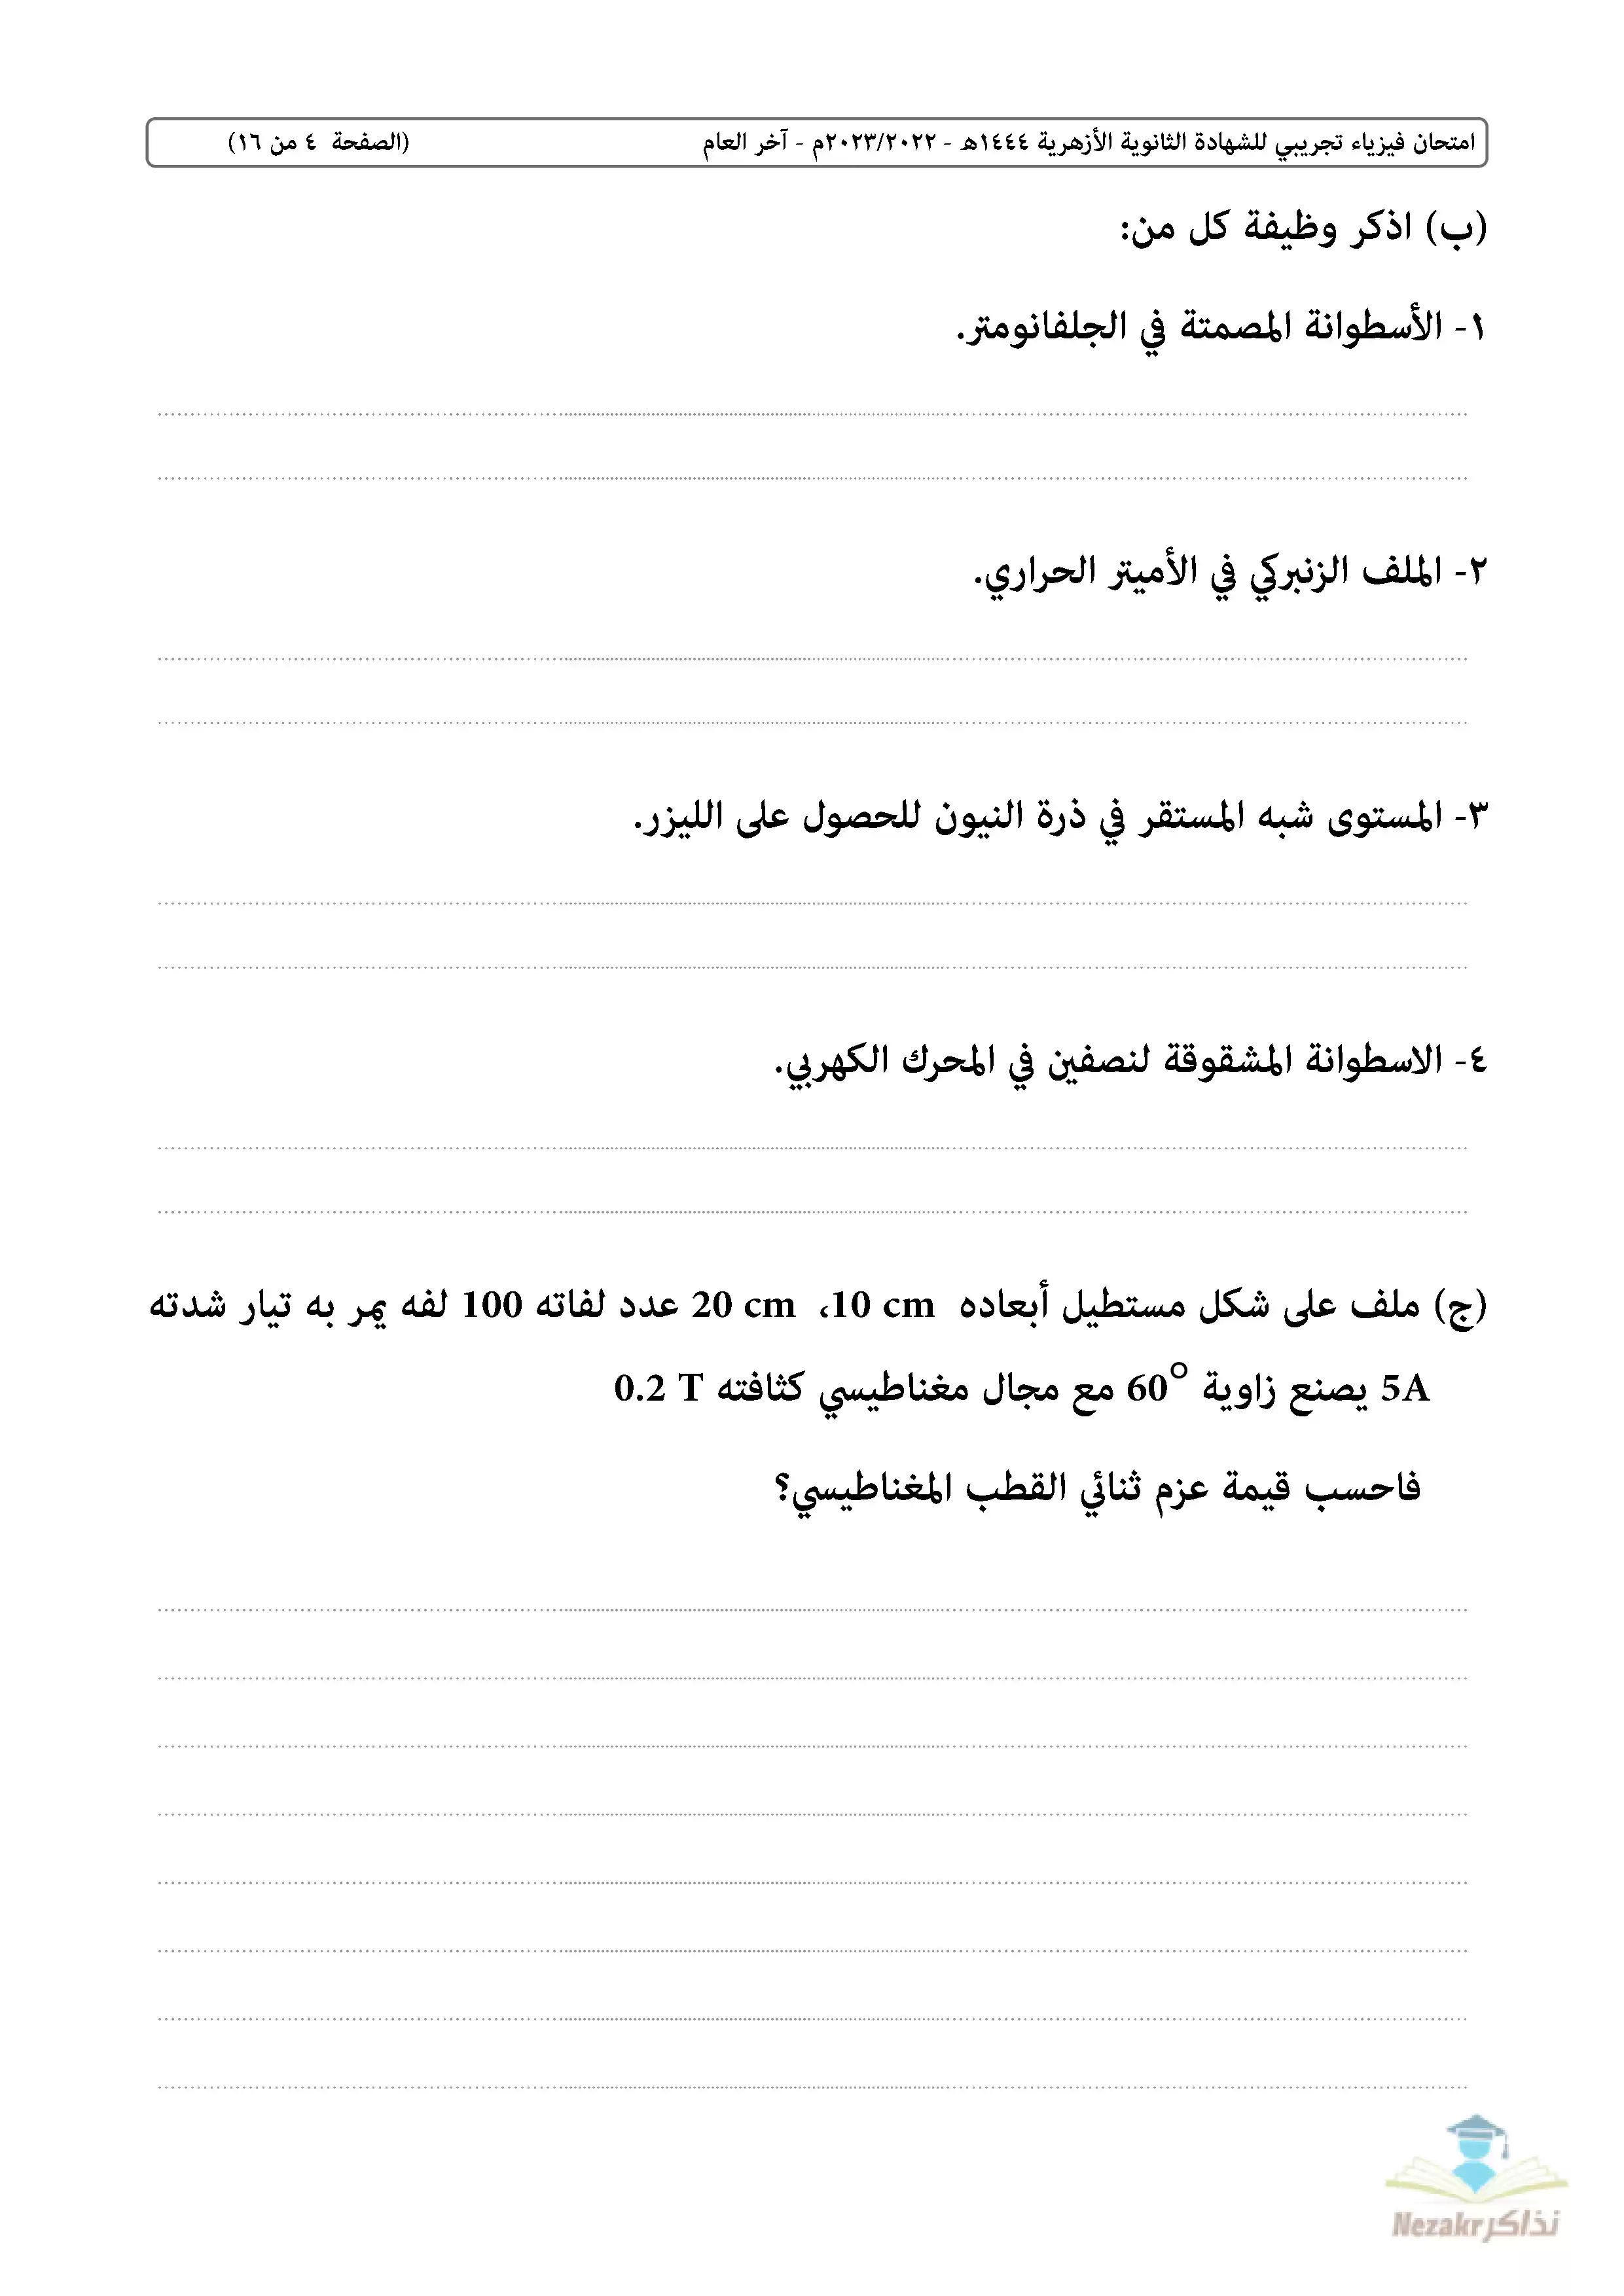 امتحان فيزياء تجريبي للشهادة الثانوية الأزهرية ١٤٤٤هـ - ٢٠٢٣/٢٠٢٢م - آخر العام (الصفحة ٤ من ١٦)
(ب) اذكر وظيفة كل من:
١- الأسطوانة المصمتة في الجلفانومتر.
٢- الملف الزنبركي في الأميتر الحراري.
٣- المستوى شبه المستقر في ذرة النيون للحصول على الليزر.
٤- الاسطوانة المشقوقة لنصفين في المحرك الكهربي.
(ج) ملف على شكل مستطيل أبعاده 10 cm، 20 cm عدد لفاته 100 لفه يمر به تيار شدته
5A يصنع زاوية 60° مع مجال مغناطيسي كثافته 0.2 T
فاحسب قيمة عزم ثنائي القطب المغناطيسي؟
نذاكر Nezakr